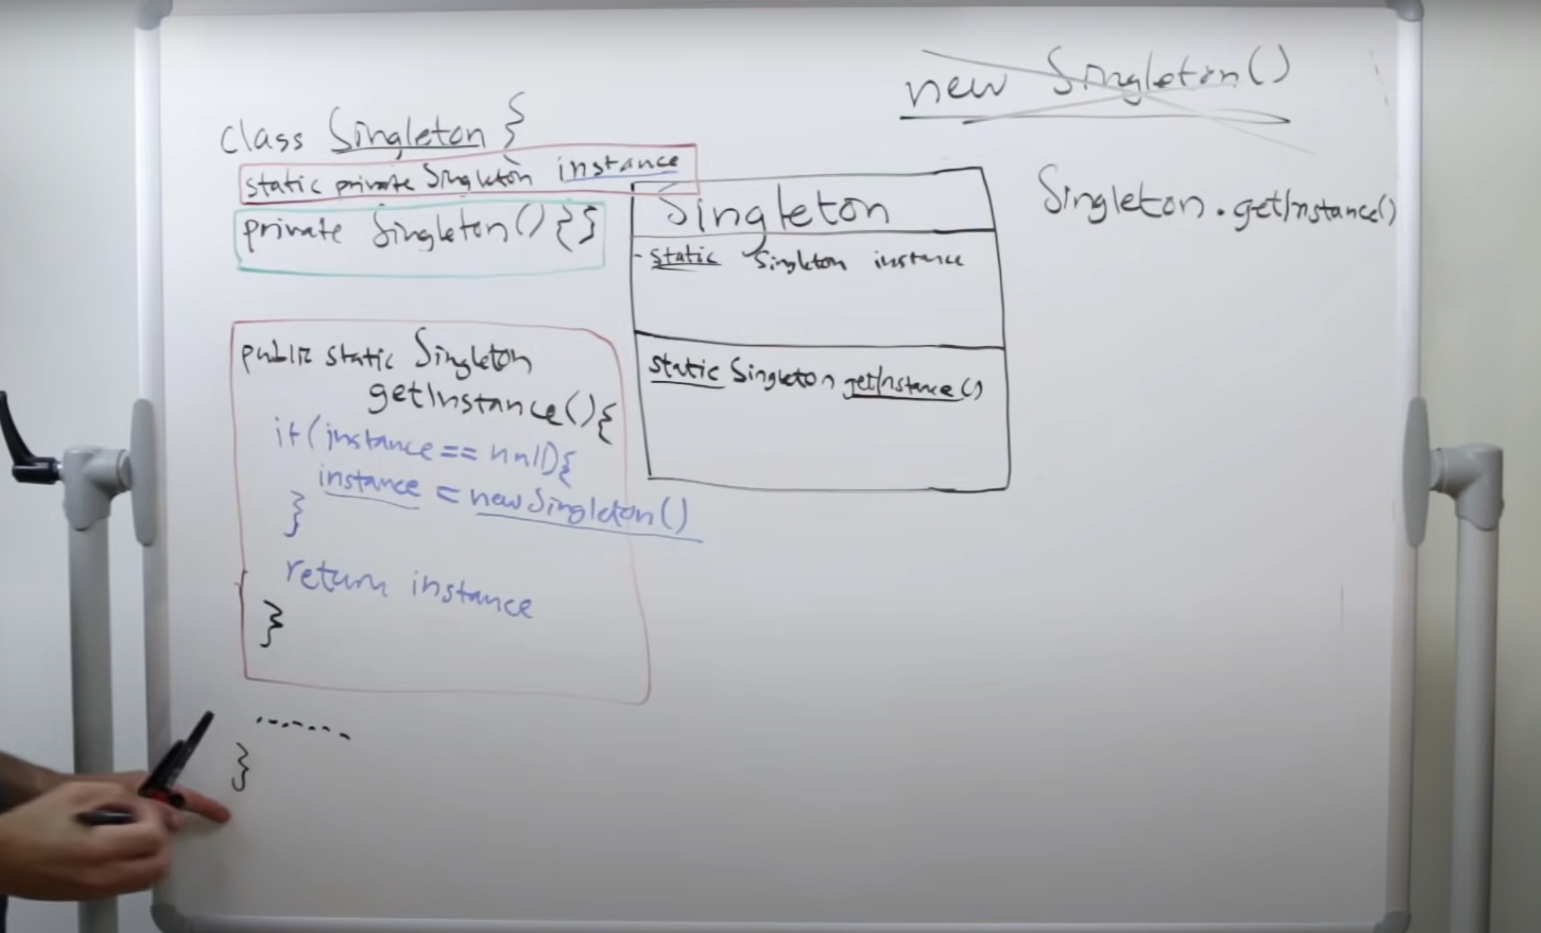 class Singleton }
static private Singleton instance
private Singleton() { }
public static Singleton
getInstance() {
if(instance == null){
instance = new Singleton()
}
return instance
}
.......
}
Singleton
- static Singleton instance
static Singleton getInstance()
new Singleton()
Singleton.getInstance()